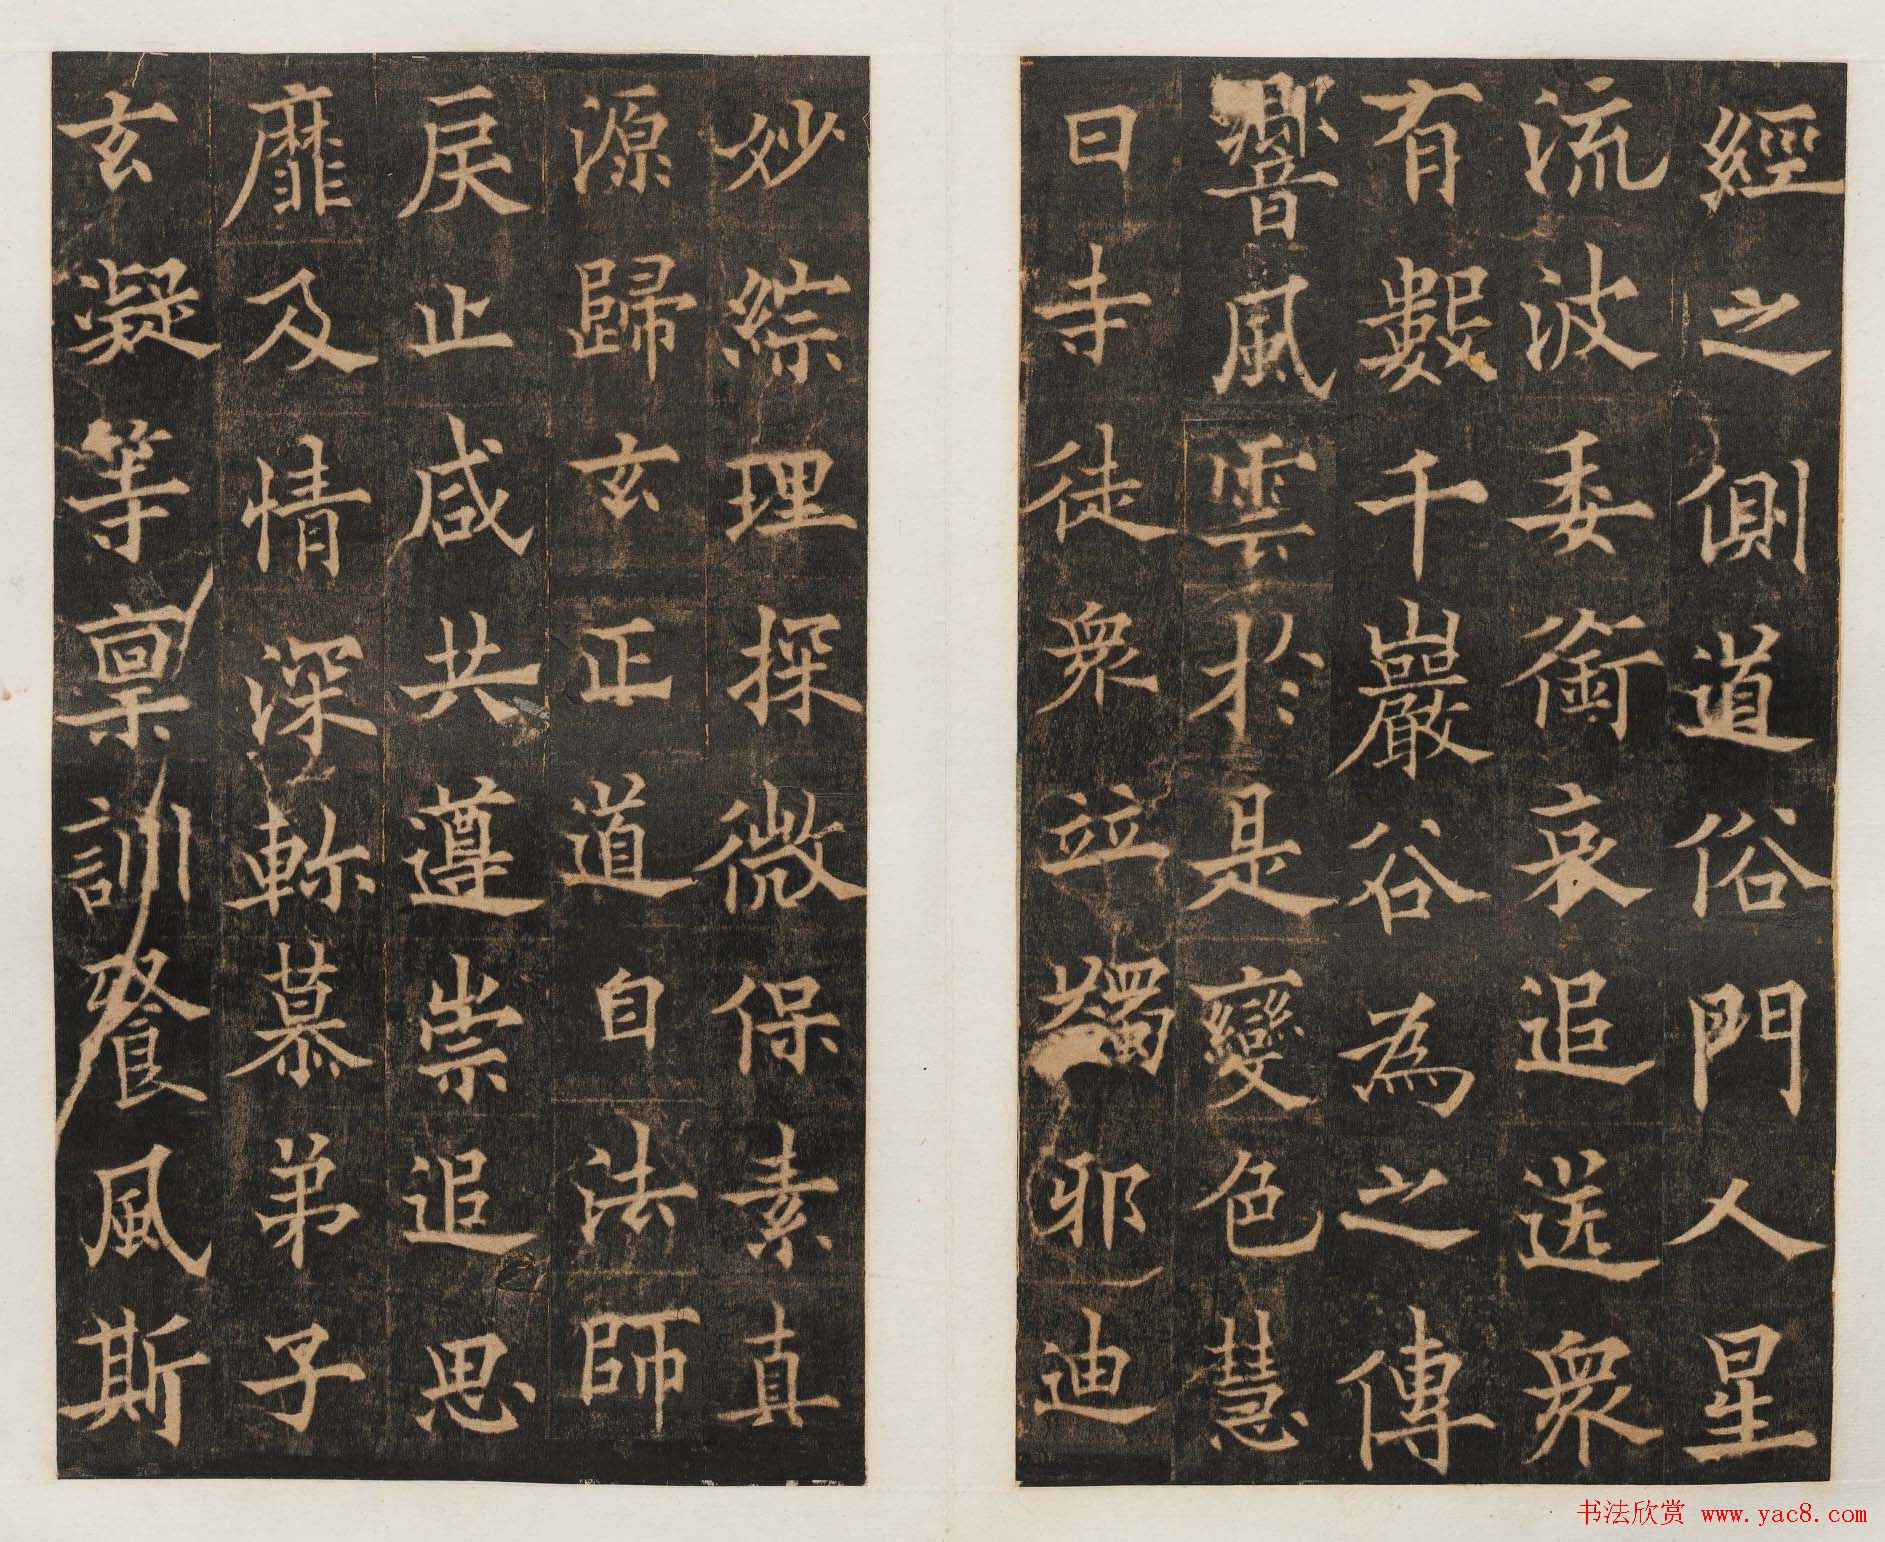 經之側道俗門人星
流波委銜哀追送衆
有數千巖谷為之傳
響風雲於是變色慧
日寺徒衆竝蠲邪迪
妙綜理探微保素真
源歸玄正道自法師
戾止咸共遵崇追思
靡及情深軫慕弟子
玄凝等稟訓飡風斯
书法欣赏 www.yac8.com